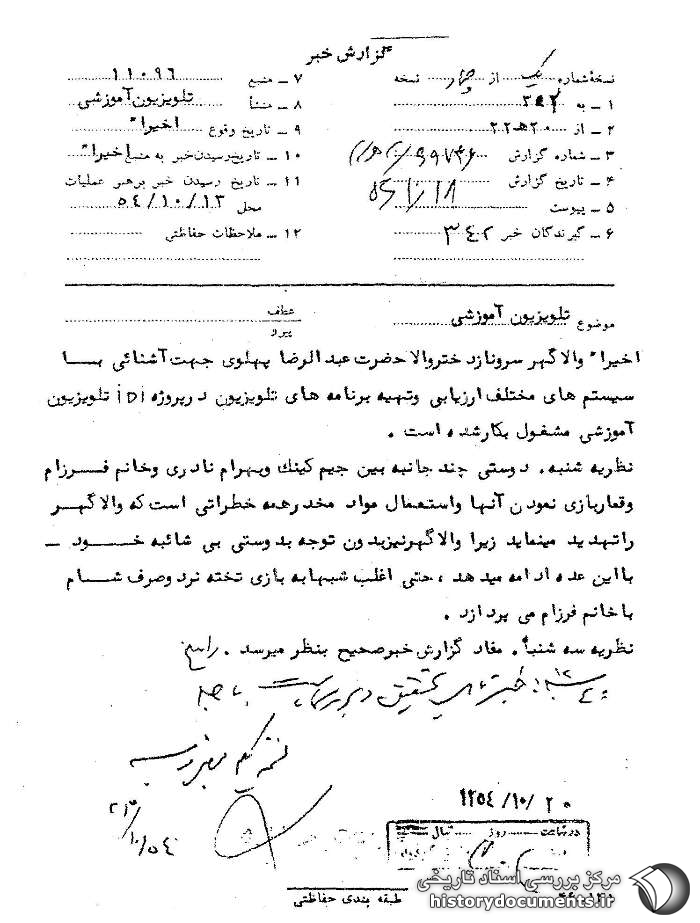 گزارش خبر
نسخه شماره یک از چهار نسخه
۱ ـ به ۳۴۲
۲ ـ از ۲۰ هـ ۲۲
۳ ـ شماره گزارش
۴ ـ تاریخ گزارش
۵ ـ پیوست
۶ ـ گیرندگان خبر ۳۴۲
۷ ـ منبع ۱۱۰۹۶
۸ ـ منشأ تلویزیون آموزشی
۹ ـ تاریخ وقوع اخیرا"
۱۰ ـ تاریخ رسیدن خبر به منبع اخیرا"
۱۱ ـ تاریخ رسیدن خبر برهبر عملیات
محل ۵٤/۱۰/۱۳
۱۲ ـ ملاحظات حفاظتی
موضوع تلویزیون آموزشی
عطف
پیرو
اخیرا" والاگهر سروناز دختر والاحضرت عبدالرضا پهلوی جهت آشنائی بــا
سیستم های مختلف ارزیابی وتهیه برنامه های تلویزیون درپروژه iDi تلویزیون
آموزشی مشغول بکارشده است .
نظریه شنبه. دوستی چند جانبه بین جیم کینك وبهرام نادری وخانم فــرزام
وقماربازی نمودن آنها واستعمال مواد مخدرهمه خطراتی است که والاگهــر
راتهدید مینماید زیرا والاگهرنیزبدون توجه بدوستی بی شائبه خــود ــ
بااین عده ادامه میدهد ، حتی اغلب شبهابه بازی تخته نرد وصرف شــام
باخانم فرزام می پردازد .
نظریه سه شنبه. مفاد گزارش خبرصحیح بنظر میرسد .
۱۳٥٤/۱۰/۲۰
در ساعت روز سال
طبقه بندی حفاظتی
مرکز بررسی اسناد تاریخی
historydocuments.ir